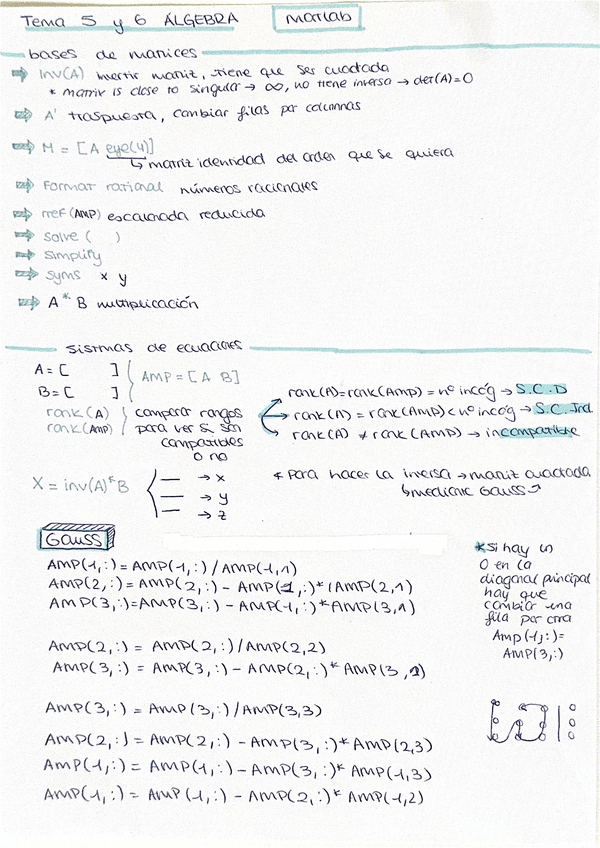 Tema 5 y 6 ÁLGEBRA matlab
bases de matrices
⇒ inv(A) invertir matriz, tiene que ser cuadrada
* matrix is close to singular → ∞, no tiene inversa → det(A)=0
⇒ A' traspuesta, cambiar filas por columnas
⇒ M = [A eye(4)]
↳ matriz identidad del orden que se quiera
⇒ Format rational números racionales
⇒ rref(AMP) escalonada reducida
⇒ solve ( )
⇒ simplify
⇒ syms x y
⇒ A * B multiplicación
sistmas de ecuaciones
A = [ ]
B = [ ]
AMP = [A B]
rank(A)
rank(Amp)
comparar rangos
para ver si son
compatibles
o no
rank(A)=rank(Amp) = nº incóg → S.C.D
rank(A) = rank(Amp) < nº incóg → S.C.Ind
rank(A) ≠ rank(AMP) → incompatible
X = inv(A)*B
— → x
— → y
— → z
* Para hacer la inversa → matriz cuadrada
↳ mediante Gauss
Gauss
AMP(1,:) = AMP(1,:) / AMP(1,1)
AMP(2,:) = AMP(2,:) - AMP(1,:)* (AMP(2,1)
AMP(3,:)=AMP(3,:) - AMP(1,:)*AMP(3,1)
AMP(2,:) = AMP(2,:)/AMP(2,2)
AMP(3,:) = AMP(3,:) - AMP(2,:)* AMP(3,2)
AMP(3,:) = AMP(3,:)/AMP(3,3)
AMP(2,:) = AMP(2,:) - AMP(3,:)* AMP(2,3)
AMP(1,:) = AMP(1,:) - AMP(3,:)* AMP(1,3)
AMP(1,:) = AMP(1,:) - AMP(2,:)* AMP(1,2)
* si hay un
0 en la
diagonal principal
hay que
cambiar una
fila por otra
Amp(1,:)=
AMP(3,:)